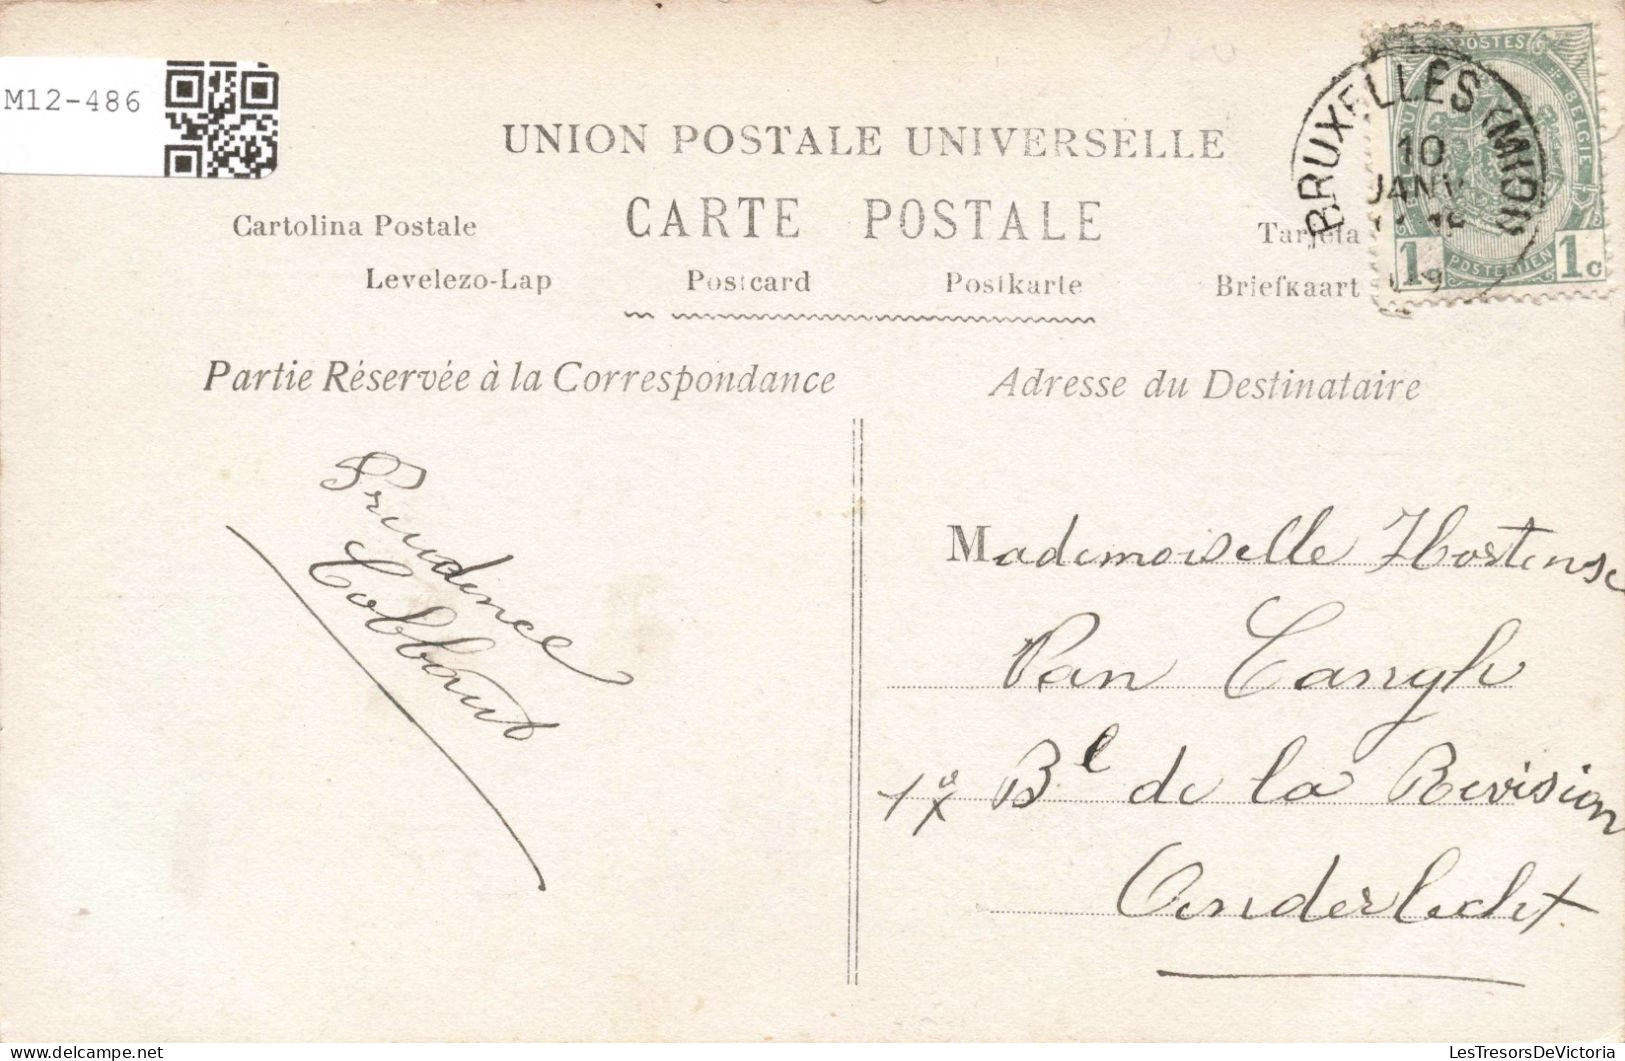 M12-486
UNION POSTALE UNIVERSELLE
CARTE POSTALE
Cartolina Postale
Tarjeta
Levelezo-Lap
Postcard
Postkarte
Briefkaart
BRUXELLES (MIDI)
10
JANV
POSTES
BELGIE
POSTERIJEN
1
1c
Partie Réservée à la Correspondance
Adresse du Destinataire
Prudence
Cobbaut
Mademoiselle Hortense
Van
Bl de la Revision
Anderlecht
LesTresorsDeVictoria